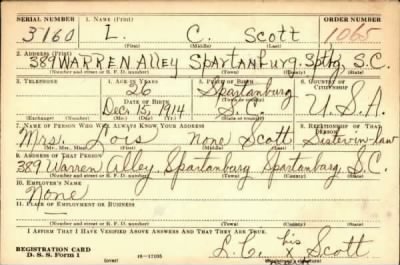 SERIAL NUMBER 1. NAME (Print) ORDER NUMBER
3160 L. C. Scott 1065
(First) (Middle) (Last)
2. ADDRESS (Print)
389 WARREN Alley Spartanburg. Sptbg, S.C.
(Number and street or R. F. D. number) (Town) (County) (State)
3. TELEPHONE 4. AGE IN YEARS 5. PLACE OF BIRTH 6. COUNTRY OF CITIZENSHIP
26 Spartanburg
DATE OF BIRTH (Town or county)
Dec 15, 1914 S.C. U.S.A.
(Exchange) (Number) (Mo.) (Day) (Yr.) (State or country)
7. NAME OF PERSON WHO WILL ALWAYS KNOW YOUR ADDRESS 8. RELATIONSHIP OF THAT PERSON
Mrs. Lois None Scott Sister-in-law
(Mr., Mrs., Miss) (First) (Middle) (Last)
9. ADDRESS OF THAT PERSON
389 Warren Alley. Spartanburg Spartanburg, S.C.
(Number and street or R. F. D. number) (Town) (County) (State)
10. EMPLOYER'S NAME
None
11. PLACE OF EMPLOYMENT OR BUSINESS
—
(Number and street or R. F. D. number) (Town) (County) (State)
I AFFIRM THAT I HAVE VERIFIED ABOVE ANSWERS AND THAT THEY ARE TRUE.
REGISTRATION CARD
D. S. S. Form 1 (over) 16—17105 L.C. his x Scott